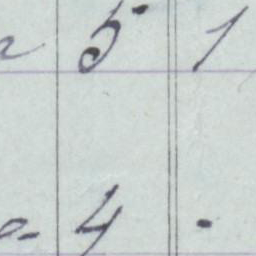 5 1
4 .